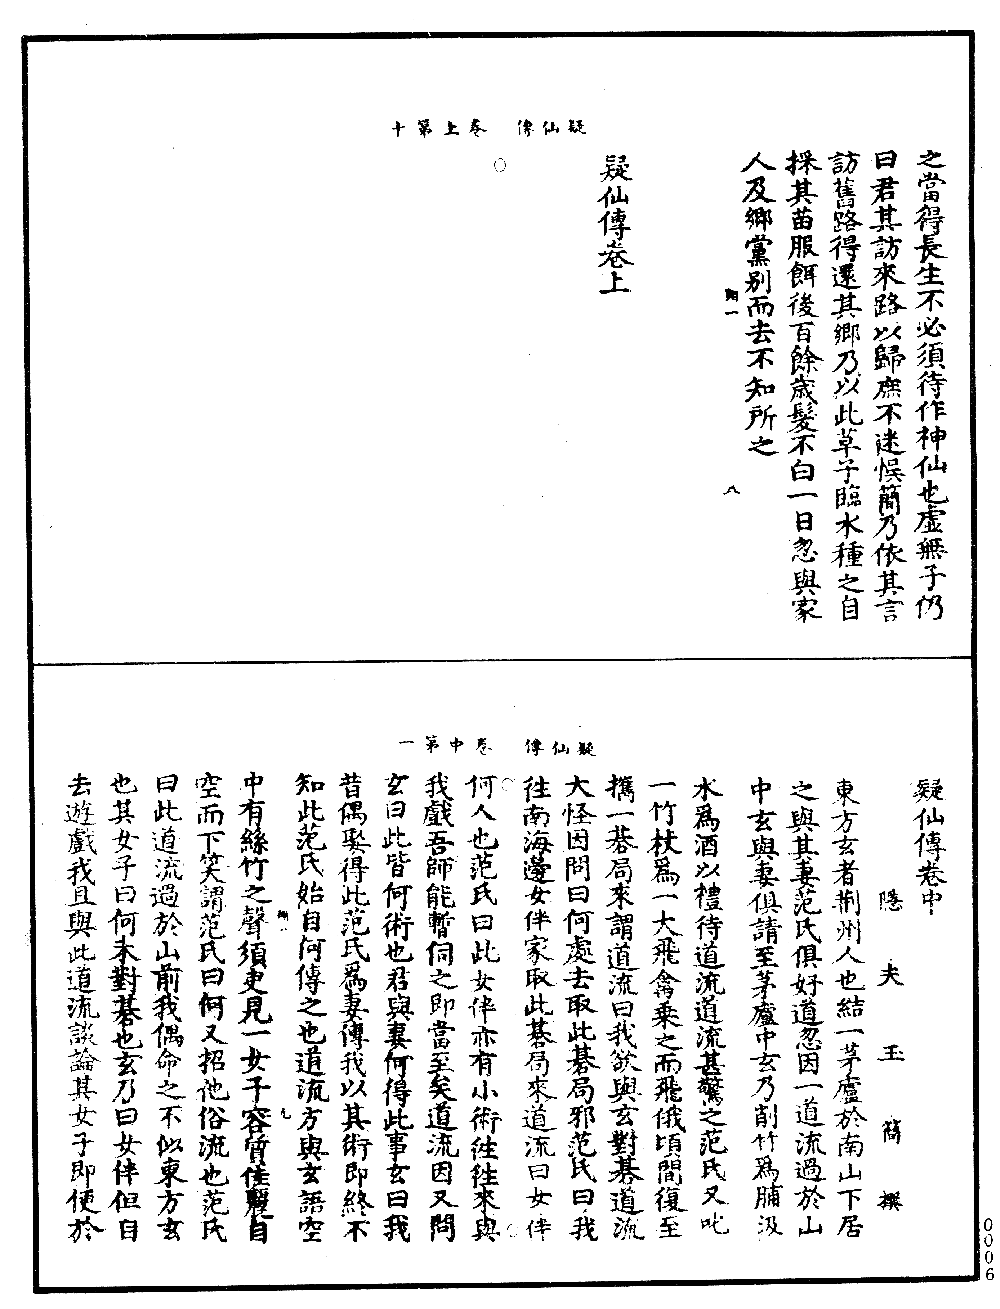 疑仙傳　卷上第十
之當得長生不必須待作神仙也虛無子仍
曰君其訪來路以歸庶不迷悞簡乃依其言
訪舊路得還其鄉乃以此草子臨水種之自
採其苗服餌後百餘歲髮不白一日忽與家
人及鄉黨別而去不知所之
八
疑仙傳卷上
疑仙傳　卷中第一
疑仙傳卷中
隱夫王簡撰
東方玄者荆州人也結一茅廬於南山下居
之與其妻范氏俱好道忽因一道流過於山
中玄與妻俱請至茅廬中玄乃削竹爲脯汲
水爲酒以禮待道流道流甚驚之范氏又叱
一竹杖爲一大飛禽乘之而飛俄頃間復至
攜一碁局來謂道流曰我欲與玄對碁道流
大怪因問曰何處去取此碁局邪范氏曰我
往南海邊女伴家取此碁局來道流曰女伴
何人也范氏曰此女伴亦有小術往往來與
我戲吾師能暫伺之即當至矣道流因又問
玄曰此皆何術也君與妻何得此事玄曰我
昔偶娶得此范氏爲妻傳我以其術即終不
知此范氏始自何傳之也道流方與玄語空
九
中有絲竹之聲須臾見一女子容質佳麗自
空而下笑謂范氏曰何又招他俗流也范氏
曰此道流過於山前我偶命之不似東方玄
也其女子曰何未對碁也玄乃曰女伴但自
去遊戲我且與此道流談論其女子即便於
0006